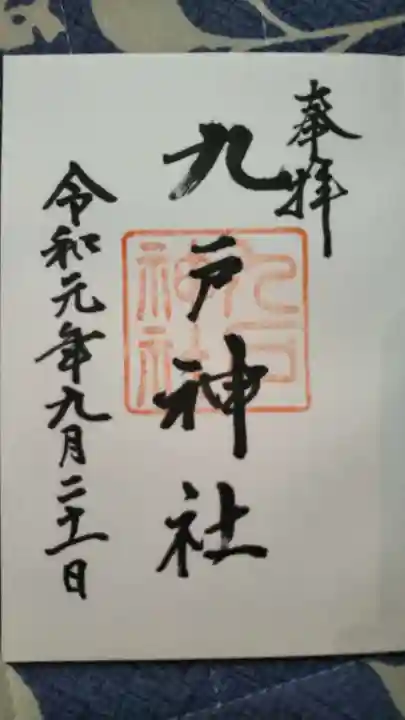 奉拝
九戸神社
九戸神社
令和元年九月二十一日